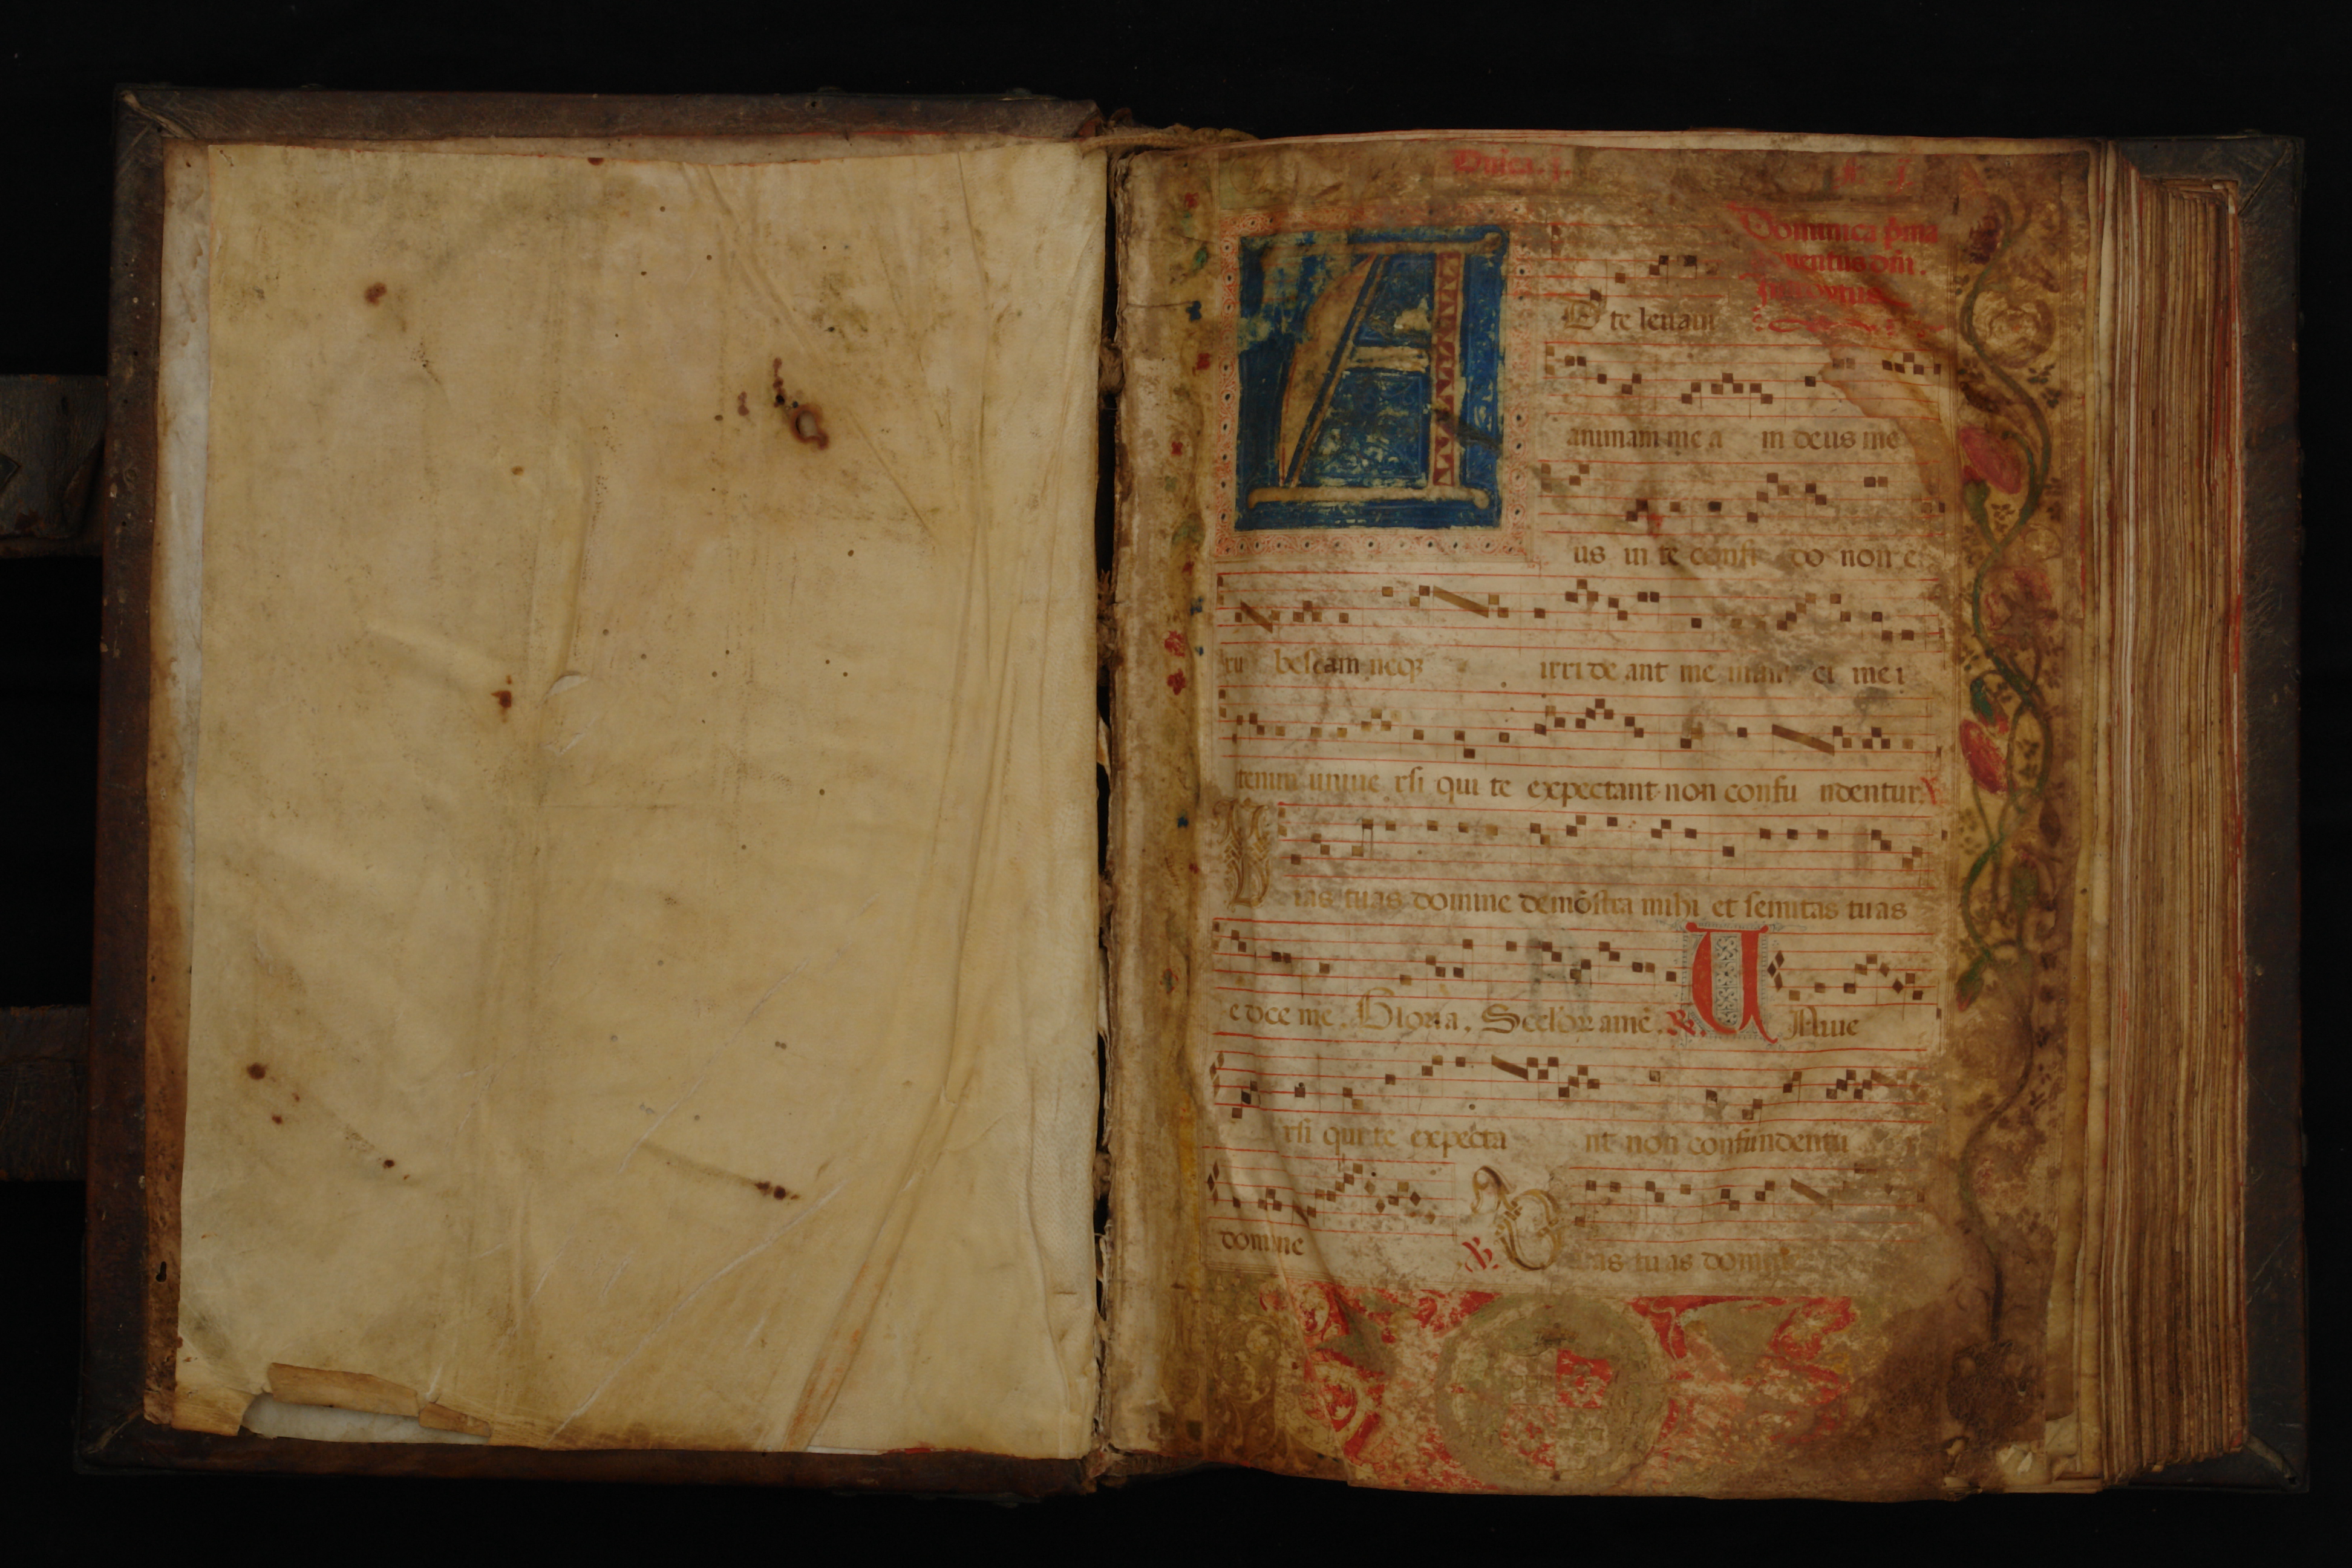 Dñica .j.
Dominica p̃ma
aduentus dñi.
Introytus
A
D te leuaui
animam me a m deus me
us in te confi do non e
ru bescam neqꝫ irri de ant me inimi ci me i
etenim uniue rsi qui te expectant non confu ndentur. ℣
V ias tuas domine demõstra mihi et semitas tuas
e doce me. Gloria. Seclorꝝ amẽ. ℟. U Niue
rsi qui te expecta nt non confundentu
domine ℣. V ias tu as domine